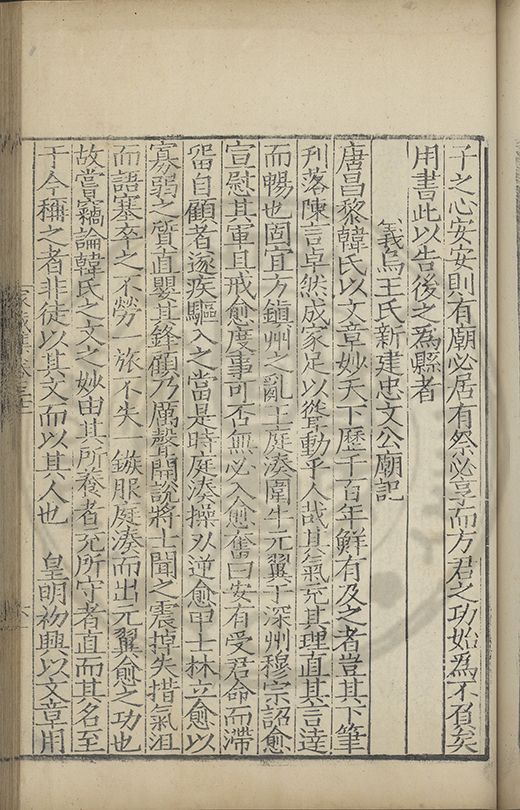 子之心安安則有廟必居有祭必享而方君之功始爲不負矣
用書此以告後之爲縣者
義烏王氏新建忠文公廟記
唐昌黎韓氏以文章妙天下歷千百年鮮有及之者豈其下筆
刋落陳言卓然成家足以聳動乎人哉其氣充其理直其言達
而暢也固宜方鎮州之亂王庭湊圍牛元翼于深州穆宗詔愈
宣慰其軍且戒愈度事可否無必入愈奮曰安有受君命而滯
留自顧者遂疾驅入之當是時庭湊操刃逆愈甲士林立愈以
寡弱之質直嬰其鋒顧乃厲聲開說將士聞之震掉失措氣沮
而語塞卒之不勞一旅不失一鏃服庭湊而出元翼愈之功也
故嘗竊論韓氏之文之妙由其所養者充所守者直而其名至
于今稱之者非徒以其文而以其人也 皇明初興以文章用